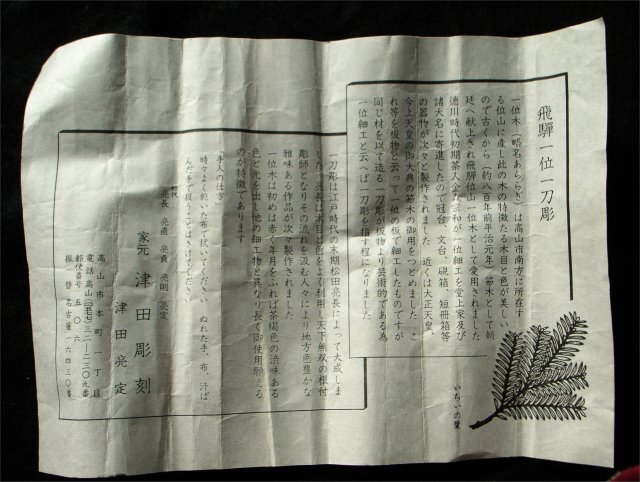 飛騨一位一刀彫
一位木（略名あららぎ）は高山市南方に所在す
る位山に産し此の木の特徴たる木目と色が美しい
ので古くから（約八百年前平治元年）笏木として朝
廷へ献上され飛騨位山一位木として愛用されました
徳川時代初期茶人金森宗和が一位細工を堂上家及び
諸大名に寄進したので冠台、文台、硯箱、短冊箱等
の器物が次々と製作されました　近くは大正天皇、
今上天皇の御大典の笏木の御用をつとめました　こ
れ等を板物と云って一位の板で細工したものですが
同じ材を以て造る一刀彫が板物より芸術的である為
一位細工と云へば一刀彫を指す程になりました
いちいの葉
一刀彫は江戸時代の末期松田亮長によって大成しま
した　亮長は木目と色をよく利用し天下無双の根付
彫師となりその流れを汲む人々により地方色豊かな
雅味ある作品が次々製作されました
一位木は初めは赤く年月をふれば茶褐色の渋味ある
色と光を出し他の細工物と異なり長く御使用願える
のが特徴であります
（手入の仕方）
時々よく乾いた布で拭いてください　ぬれた手、布、汗ば
んだ手で扱うことはさけてください
初代
亮長　亮直　亮貞　亮則　亮定
家元　津田彫刻
津田亮定
高山市本町一丁目
電話高山（〇五七七）三二ー二三〇九番
郵便番号　五〇六
振替名古屋一六四三〇番